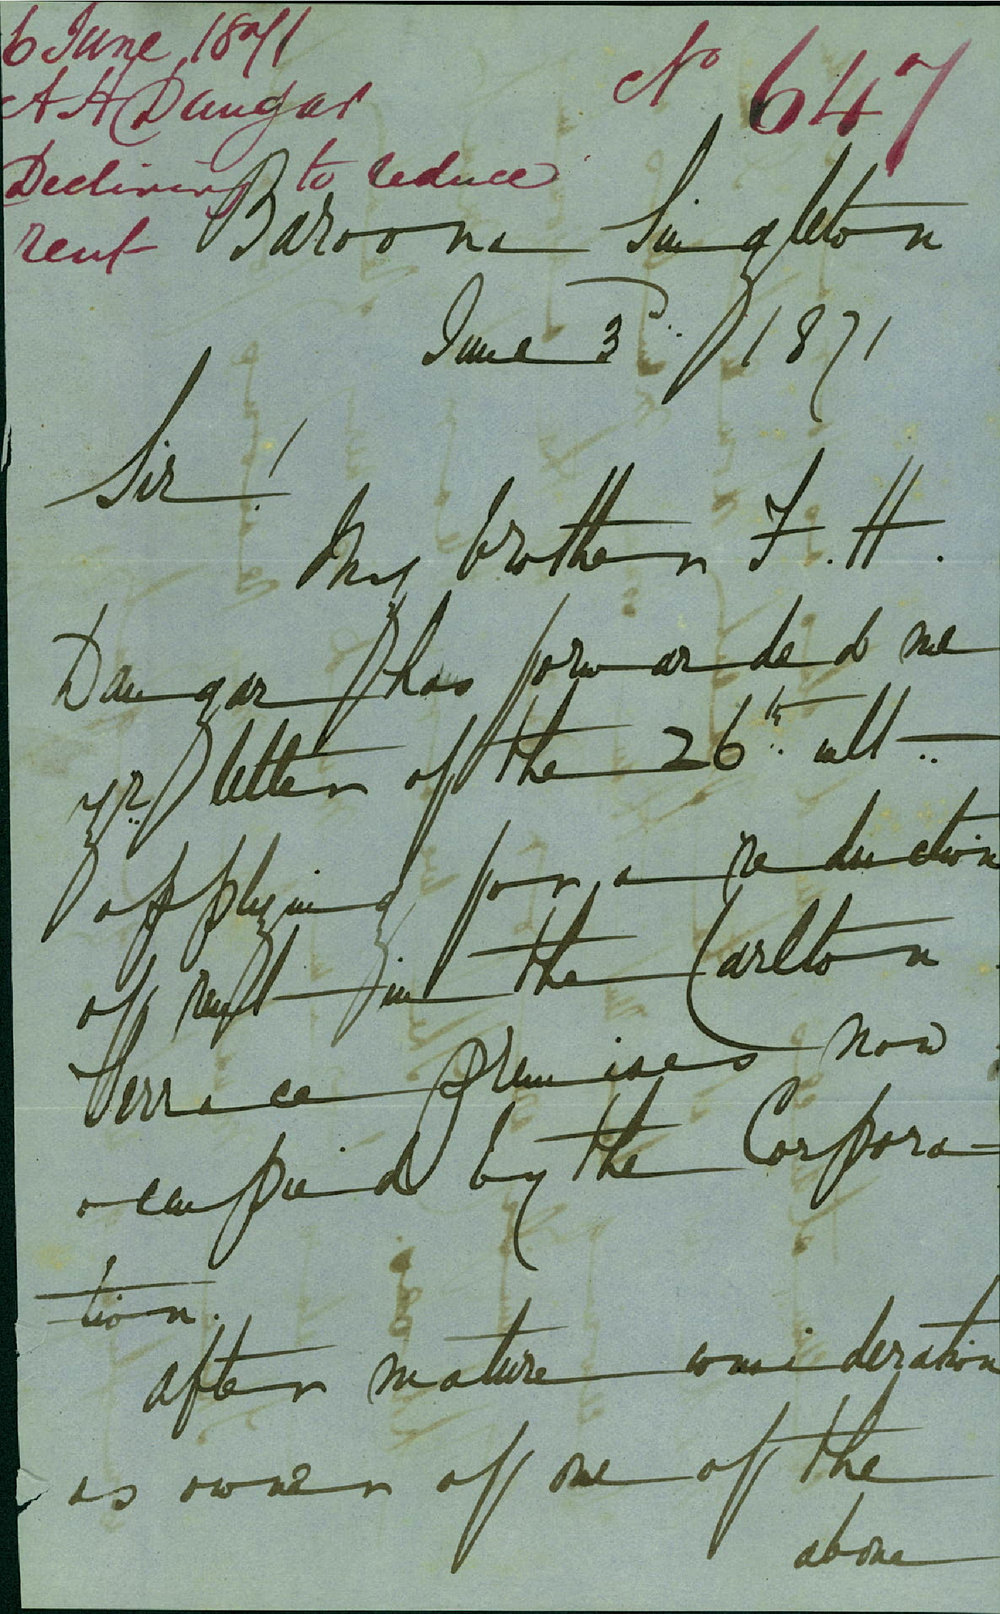 6 June 1871
A A Dangar
Declining to reduce
rent
No 647
Baroona Singleton
June 3d. 1871
Sir!
My brother F. H.
Dangar has forwarded me
yr. letter of the 26th. ult..
applying for a reduction
of rent in the Carlton
Terrace premises now
occupied by the Corpora-
tion.
After mature consideration
as owner of one of the
above